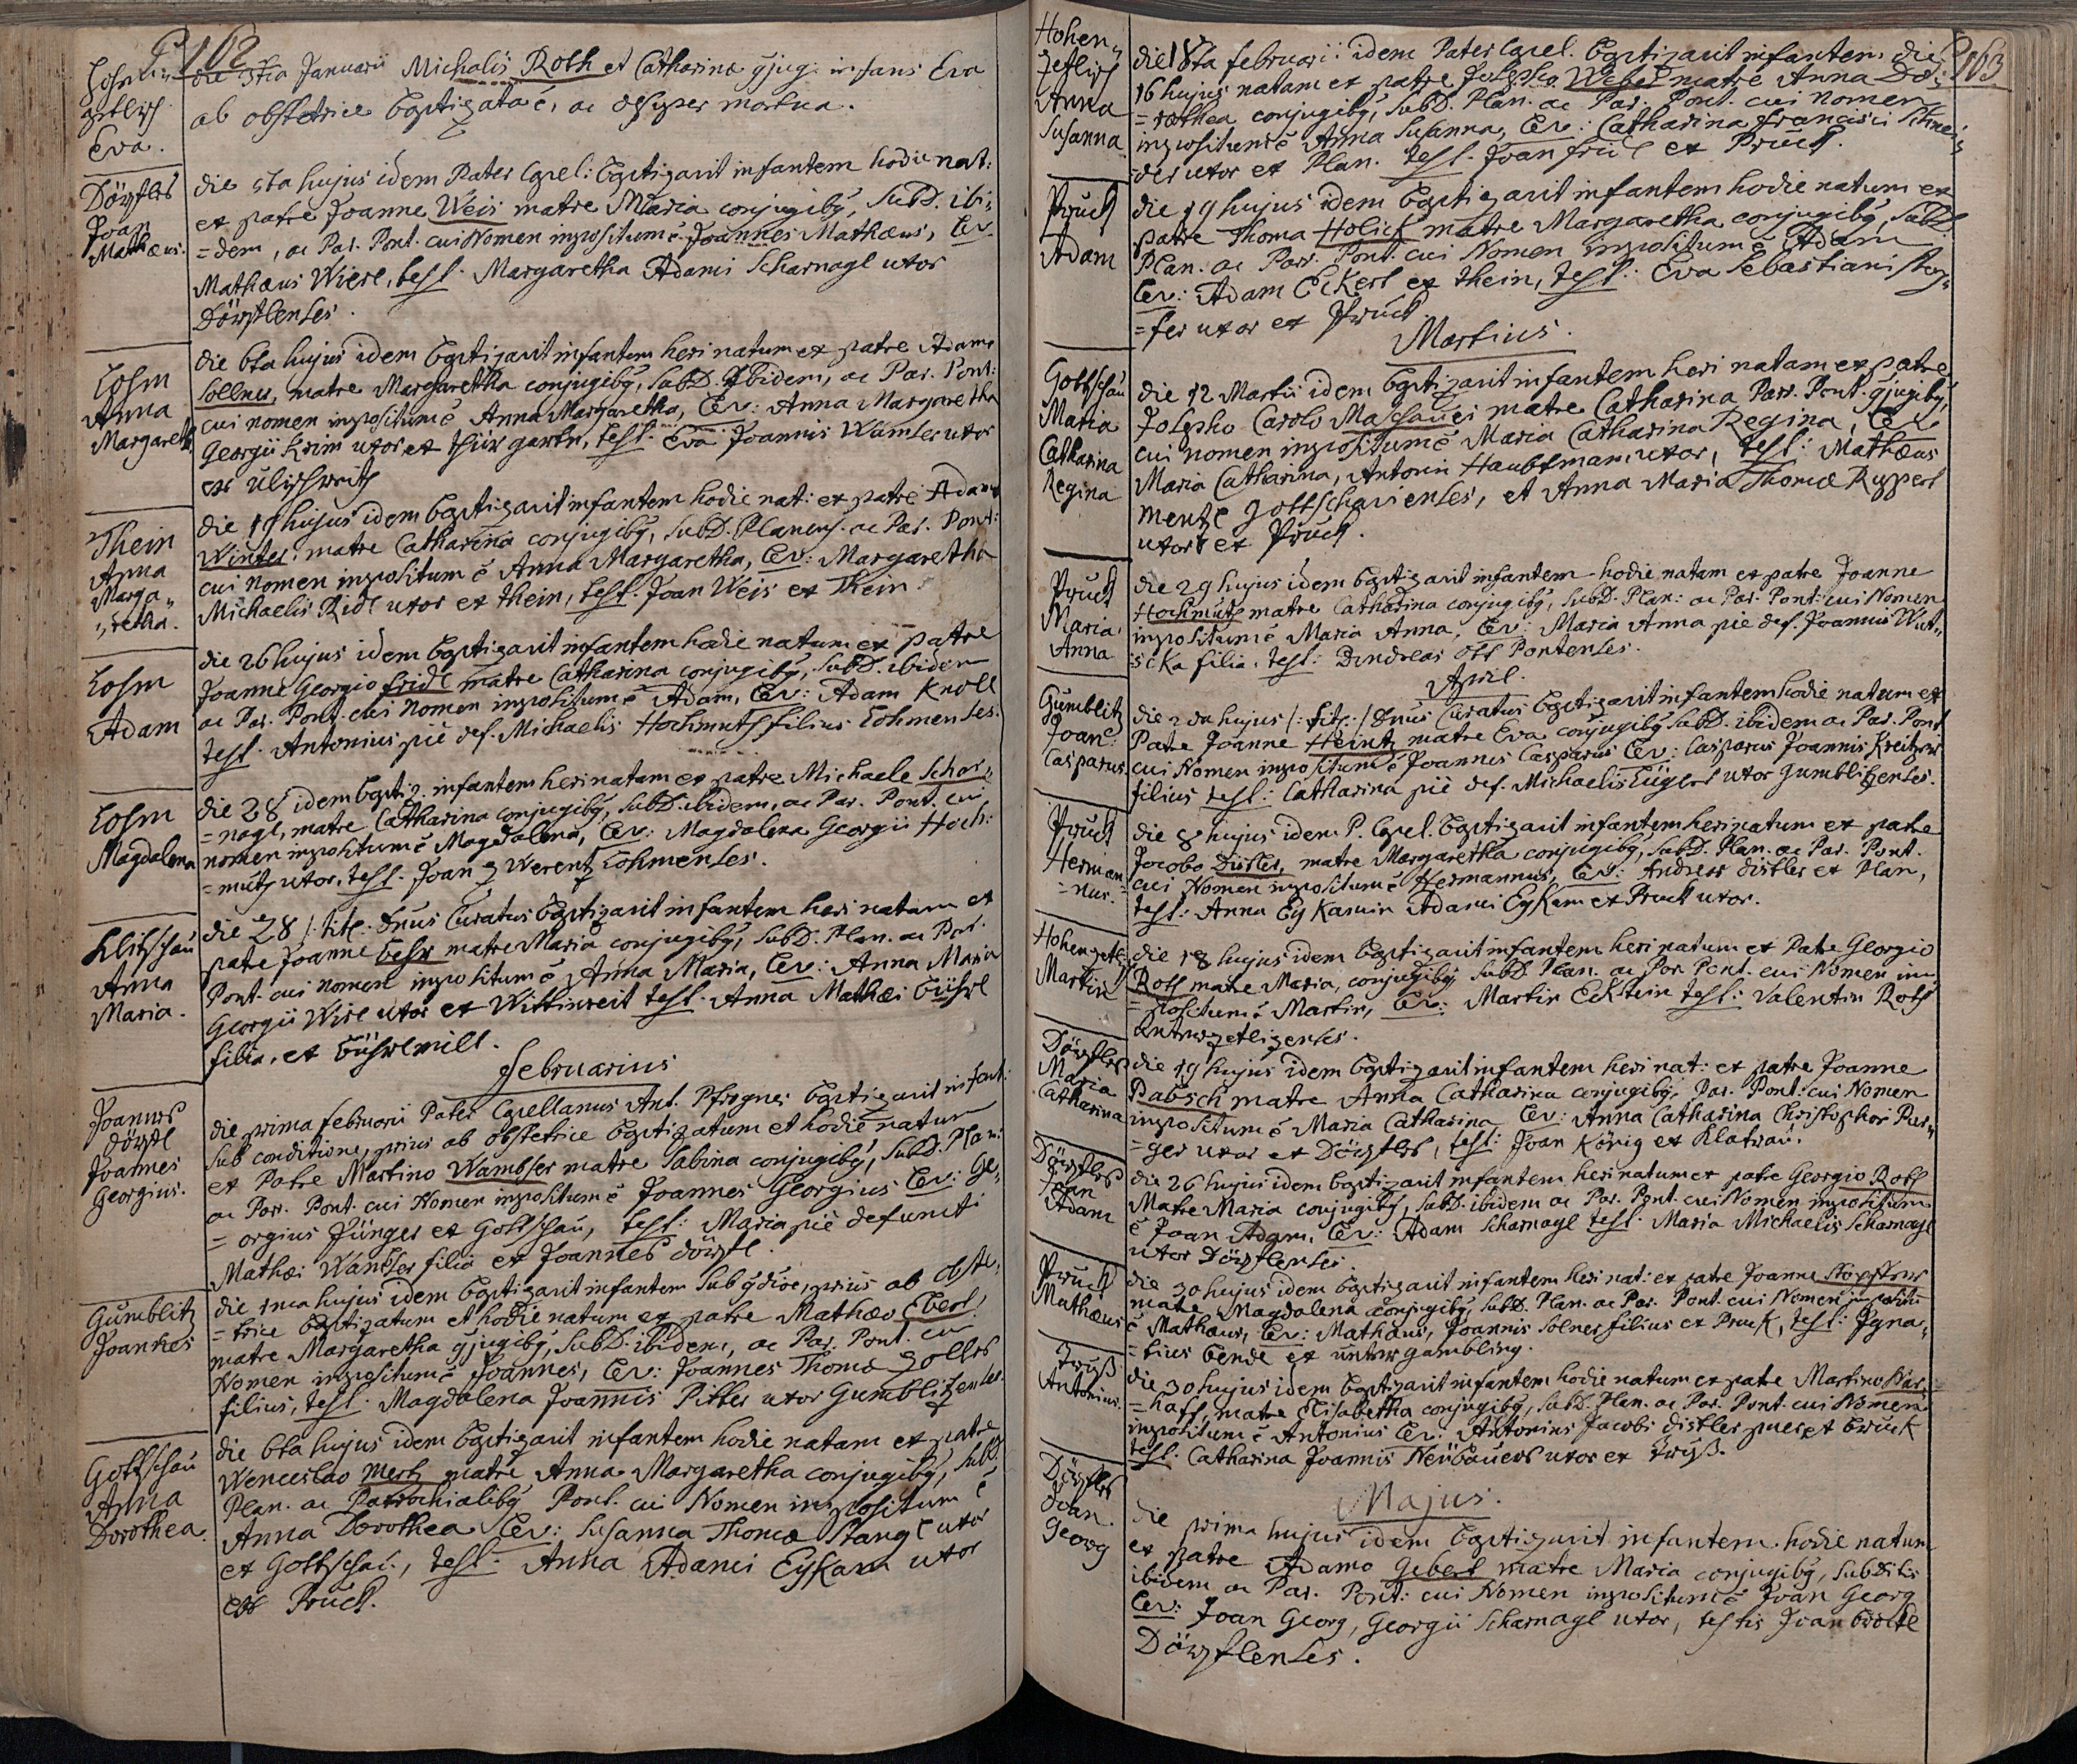 162
die 3tia Januarii Michaelis Roth et Catharinæ gjug: infans Eva
ab obstetrice baptizata ē, ac desuper mortua.
Eva.
Dörfles
Joan
Mathæus.
die 5ta hujus idem Pater Capel: baptizavit infantem hodie nat:
ex patre Joanne Weis matre Maria conjugibȝ, SubD. ibi,,
=dem, ac Par. Pont. cui Nomen impositum ē Joannes Mathæus, Lev.
Mathæus Wierl, test. Margaretha Adami Scharnagl uxor
Dörflenses.
Lohm
Anna
Margareth.
die 6ta hujus idem baptizavit infantem heri natum ex patre Adamo
Sollner, matre Margaretha conjugibȝ, SubD. Ibidem, ac Par. Pont:
cui nomen impositum ē Anna Margaretha, Lev: Anna Margaretha
Georgii Krim uxor ex thürgartn, test. Eva Joannis Wamser uxor
ex
Thein
Anna
Marga,,
,,retha.
die 19 hujus idem baptizavit infantem hodie nat: ex patre Adamo
Winter, matre Catharina conjugibȝ, SubD. Planens. ac Par. Pont:
cui nomen impositum ē Anna Margaretha, Lev: Margaretha
Michaelis Ridl uxor ex thein, test. Joan Weis ex Thein.
Lohm
Adam
die 26 hujus idem baptizavit infantem hodie natum ex patre
Joanne Georgio fridl matre Catharina conjugibȝ, SubD. ibidem
ac Par. Pont. cui Nomen impositum ē Adam, Lev: Adam Knoll
test. Antonius pie def. Michaelis Hochmuth filius Lohmenses.
Lohm
Magdalena
die 28 idem baptiz. infantem heri natam ex patre Michaele Schar,,
=nagl, matre Catharina conjugibȝ, SubD. ibidem, ac Par. Pont. cui
nomen impositum ē Magdalena, Lev: Magdalena Georgii Hoch:
=muth uxor, test. Joan Werentz Lohmenses.
Klitschau
Anna
Maria.
die 28 /: titl. Dnus Curatus baptizavit infantem heri natam ex
patre Joanne behr matre Maria conjugibȝ, SubD. Plan. ac Par.
Pont. cui nomen impositum ē Anna Maria, Lev: Anna Maria
Georgii Wirl uxor ex Wittinreit test. Anna Mathæi
filia, ex
Februarius
Joannes
dörfl
Joannes
Georgius.
die prima februarii Pater Capellanus Ant. Pfrogner baptizavit infant:
sub conditione, prius ab obstetrice baptizatum et hodie natum
ex Patre Martino Wambser matre Sabina conjugibȝ, SubD. Plan:
ac Par. Pont. cui Nomen impositum ē Joannes Georgius Lev: Ge,,
=orgius Jünger ex Gottschau, test: Maria pie defuncti
Mathæi Wambser filia ex Joannes dörfl.
Gumblitz
Joannes
die 1ma hujus idem baptizavit infantem sub gdioe, prius ab obste,,
=trice baptizatum et hodie natum ex patre Mathæo Eberl,
matre Margaretha gjugibȝ, SubD. ibidem, ac Par. Pont. cui
Nomen impositum ē Joannes, Lev: Joannes Thomæ
filius, test. Magdalena Joannis Pitter uxor Gumblitzenses.
Gottschau
Anna
Dorothea.
die 6ta hujus idem baptizavit infantem hodie natam ex patre
Wenceslao Mertz matre Anna Margaretha conjugibȝ, SubD.
Plan. ac Parochialibȝ Pont. cui Nomen impositum ē
Anna Dorothea Lev: Susanna Thomæ Stangl uxor
ex Gottschau, test. Anna Adami Eykam uxor
ex Pruck.
163
Hohen,,
zetlisch
Anna
Susanna
die 18ta februarii idem Pater Capel. baptizavit infantem die
16 hujus natam ex patre Josepho Weber matre Anna Do:
=rothea conjugibȝ, SubD. Plan. ac Par. Pont. cui Nomen
impositum ē Anna Susanna, Lev: Catharina Francisci Schnei,,
=der uxor ex Plan. test. Joan fridl ex Pruck.
Pruck
Adam
die 19 hujus idem baptizavit infantem hodie natum ex
patre Thoma Holick matre Margaretha conjugibȝ, SubD.
Plan. ac Par. Pont. cui Nomen impositum ē Adam
Lev: Adam Eckerl ex thein, test: Eva Sebastiani
=fer uxor ex Pruck
Martius.
Gottschau
Maria
Catharina
Regina
die 12 Martii idem baptizavit infantem heri natam ex patre
Josepho Carolo matre Catharina Par. Pont. gjugibȝ,
cui nomen impositum ē Maria Catharina Regina, Lev
Maria Catharina, Antonin Haubtman uxor, test: Mathæus
Mentzl gottschauenses, et Anna Maria Thomæ Ruppert
uxor ex Pruck.
Pruck
Maria
Anna
die 29 hujus idem baptizavit infantem hodie natam ex patre Joanne
Hochmuth matre Catharina conjugibȝ, SubD. Plan: ac Par. Pont: cui Nomen
impositum ē Maria Anna, Lev: Maria Anna pie def. Joannis Wut,,
=scka filia. test: Andreas Ott Pontenses.
April.
Gumblitz
Joan:
Casparus.
die 2da hujus /: titl: / Dnus Curatus baptizavit infantem hodie natum ex
Patre Joanne Heintz matre Eva conjugibȝ SubD. ibidem ac Par. Pont.
cui Nomen impositum ē Joannes Casparus Lev: Casparus Joannis Kreitzer
filius test: Catharina pie def. Michaelis uxor Gumblitzenses.
Pruck
Herman
=nus.
die 8 hujus idem P. Capel. baptizavit infantem heri natum ex patre
Jacobo Distler, matre Margaretha conjugibȝ, SubD. Plan. ac Par. Pont.
cui Nomen impositum ē Hermannus, Lev: Andreas distler ex Plan,
test: Anna Eykamin Adami Eykam ex Pruck uxor.
Hohenzetl:
Martin
die 18 hujus idem baptizavit infantem heri natum ex Patre Georgio
Roth matre Maria, conjugibȝ SubD Plan. ac Par Pont. cui Nomen im
=positum ē Martin, Lev: Martin Eckstein test: Valentin Roth
Dörfles
Maria
Catharina
die 19 hujus idem baptizavit infantem heri nat: ex patre Joanne
Pabsch matre Anna Catharina conjugibȝ, Par. Pont: cui Nomen
impositum ē Maria Catharina Lev: Anna Catharina Christophor Pur,,
=ger uxor ex Dörfles, test: Joan König ex Klatrau.
Dörfles
Joan
Adam
die 26 hujus idem baptizavit infantem heri natum ex patre Georgio Roth
Matre Maria conjugibȝ, SubD. ibidem ac Par. Pont. cui Nomen impositum
ē Joan Adam, Lev: Adam Scharnagl test: Maria Michaelis Scharnagl
uxor Dörflenses.
Pruck
Mathæus
die 30 hujus idem baptizavit infantem heri nat: ex patre Joanne
matre Magdalena conjugibȝ, SubD. Plan. ac Par. Pont. cui Nomen impositū
ē Mathæus, Lev: Mathæus, Joannis Solner filius ex Pruck, test: Igna,,
=tius bendl ex untergambling.
Antonius.
die 30 hujus idem baptizavit infantem hodie natum ex patre Martino
=haff, matre Elisabetha conjugibȝ, SubD. Plan. ac Par. Pont. cui Nomen
impositum ē Antonius Lev: Antonius Jacobi distler puer ex bruck
test: Catharina Joannis Neübauer uxor ex
Majus.
Dörfles
Joan.
Georg
die prima hujus idem baptizavit infantem hodie natum
ex patre Adamo Gebert matre Maria conjugibȝ, Subditis
ibidem ac Par. Pont: cui Nomen impositum ē Joan Georg
Lev: Joan Georg, Georgii Scharnagl uxor, testis Joan
Dörflenses.